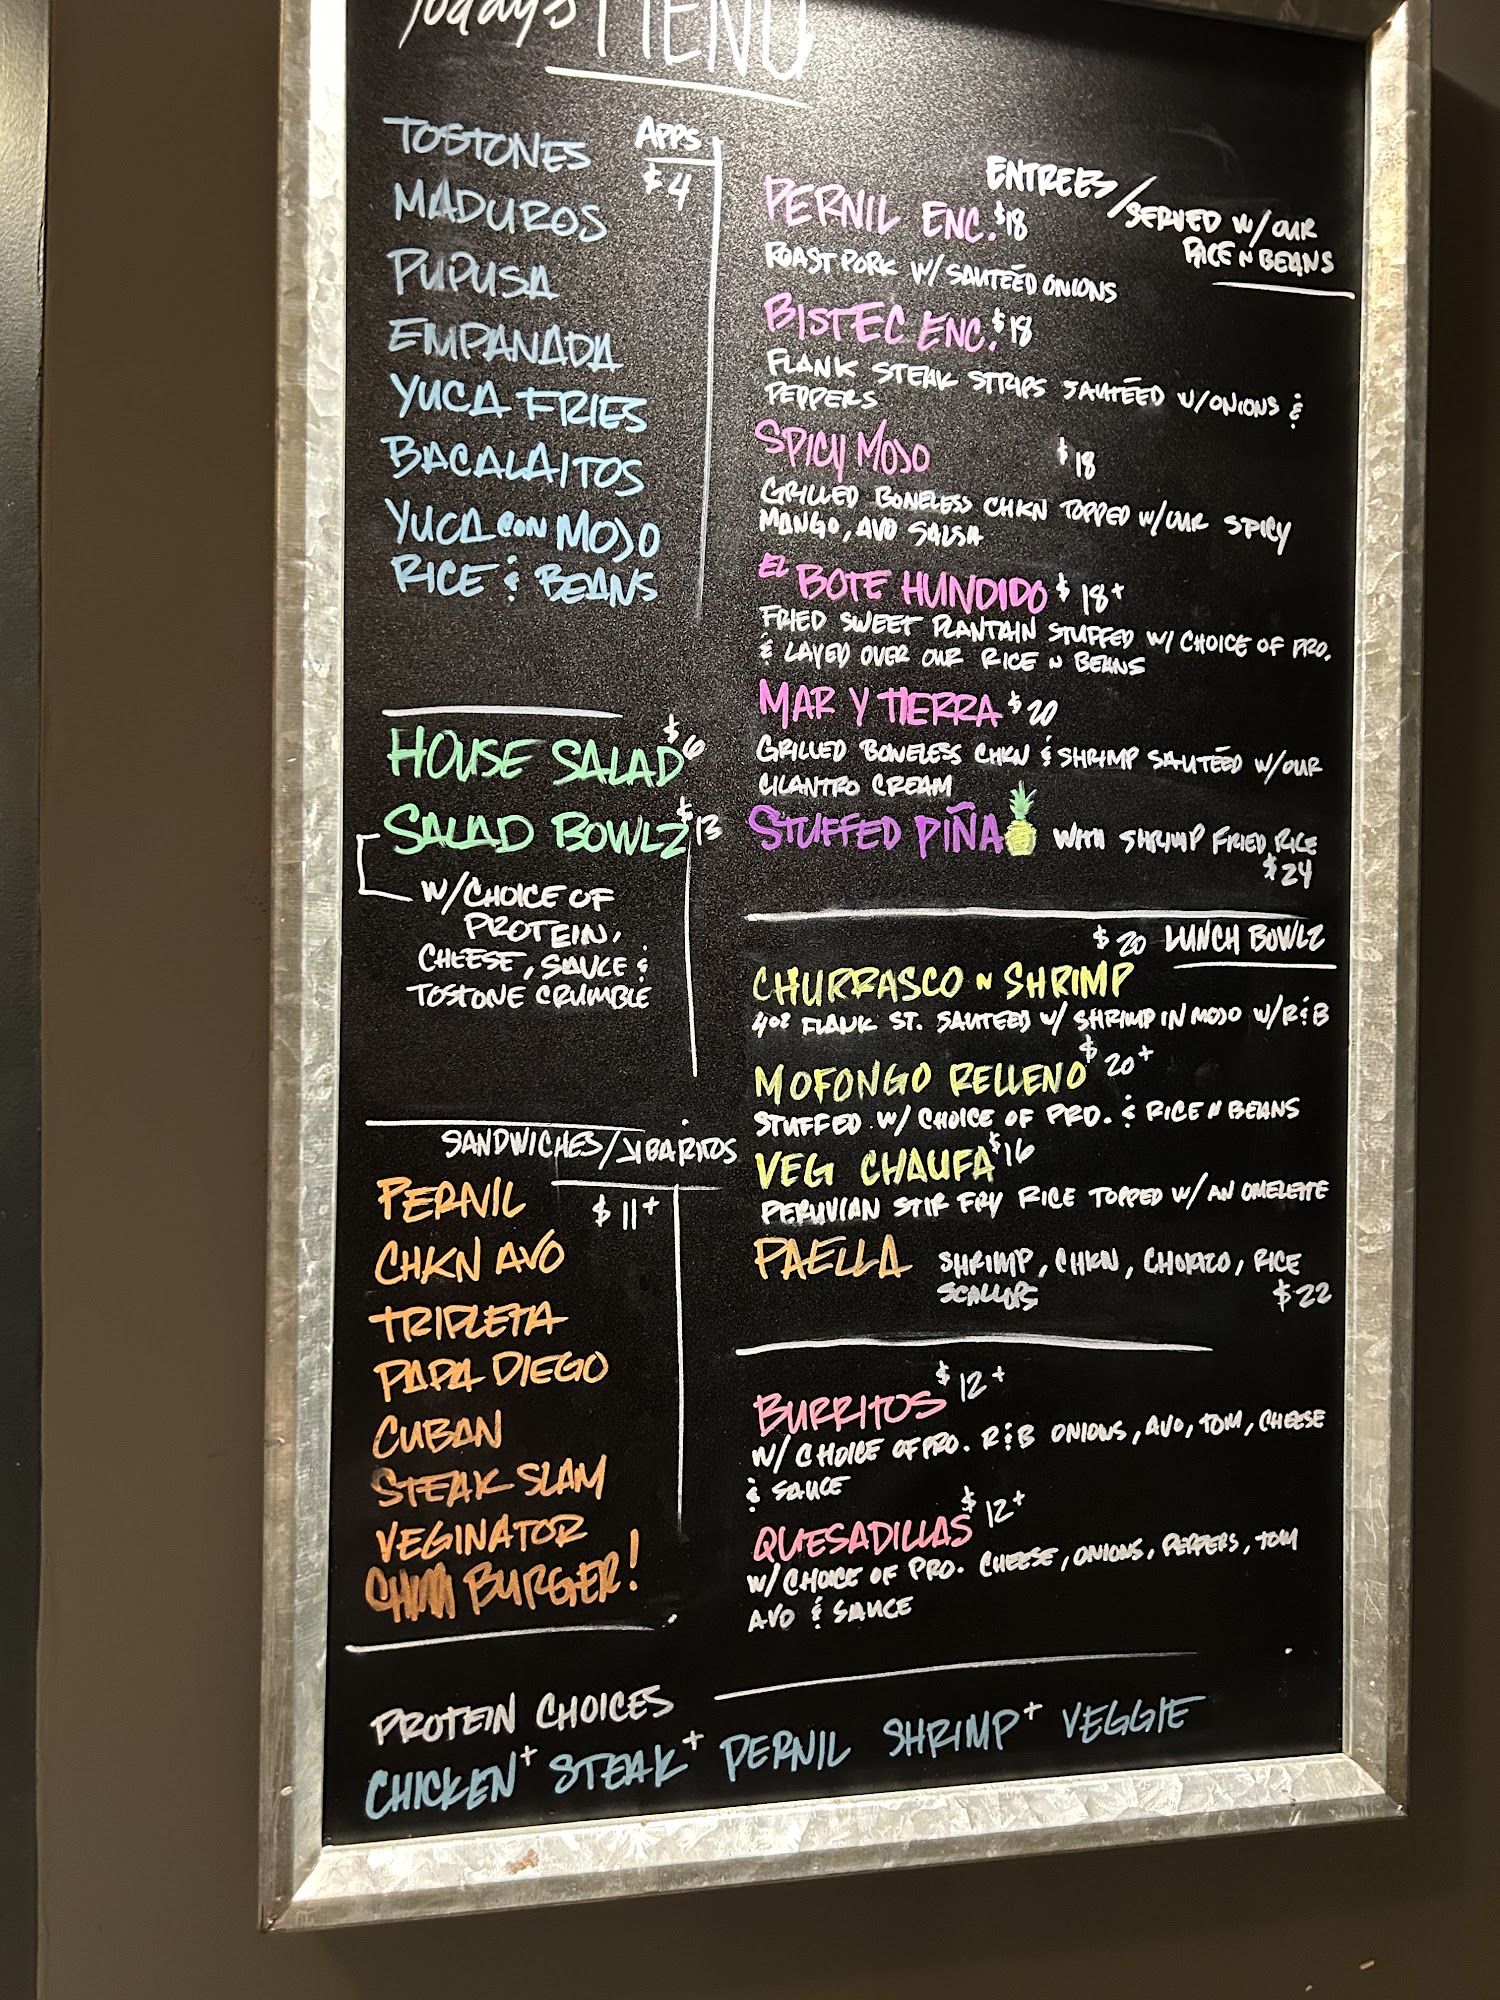 Today's MENU
APPS
$4
TOSTONES
MADUROS
PUPUSA
EMPANADA
YUCA FRIES
BACALAITOS
YUCA CON MOJO
RICE & BEANS
HOUSE SALAD $6
SALAD BOWLZ $13
W/CHOICE OF
PROTEIN,
CHEESE, SAUCE &
TOSTONE CRUMBLE
SANDWICHES/JIBARITOS
$11+
PERNIL
CHKN AVO
TRIPLETA
PAPA DIEGO
CUBAN
STEAK SLAM
VEGINATOR
CHIMI BURGER!
ENTREES/SERVED W/OUR
RICE N BEANS
PERNIL ENC. $18
ROAST PORK W/SAUTÉED ONIONS
BISTEC ENC. $18
FLANK STEAK STRIPS SAUTÉED W/ONIONS &
PEPPERS
SPICY MOJO $18
GRILLED BONELESS CHKN TOPPED W/OUR SPICY
MANGO, AVO SALSA
EL BOTE HUNDIDO $18+
FRIED SWEET PLANTAIN STUFFED W/ CHOICE OF PRO.
& LAYED OVER OUR RICE N BEANS
MAR Y TIERRA $20
GRILLED BONELESS CHKN & SHRIMP SAUTÉED W/OUR
CILANTRO CREAM
STUFFED PIÑA WITH SHRIMP FRIED RICE
$24
$20 LUNCH BOWLZ
CHURRASCO N SHRIMP
4OZ FLANK ST. SAUTEED W/ SHRIMP IN MOJO W/R&B
MOFONGO RELLENO $20+
STUFFED W/ CHOICE OF PRO. & RICE N BEANS
VEG CHAUFA $16
PERUVIAN STIR FRY RICE TOPPED W/ AN OMELETTE
PAELLA SHRIMP, CHKN, CHORIZO, RICE
SCALLOPS $22
BURRITOS $12+
W/ CHOICE OF PRO. R&B ONIONS, AVO, TOM, CHEESE
& SAUCE
QUESADILLAS $12+
W/ CHOICE OF PRO. CHEESE, ONIONS, PEPPERS, TOM
AVO & SAUCE
PROTEIN CHOICES
CHICKEN+ STEAK+ PERNIL SHRIMP+ VEGGIE